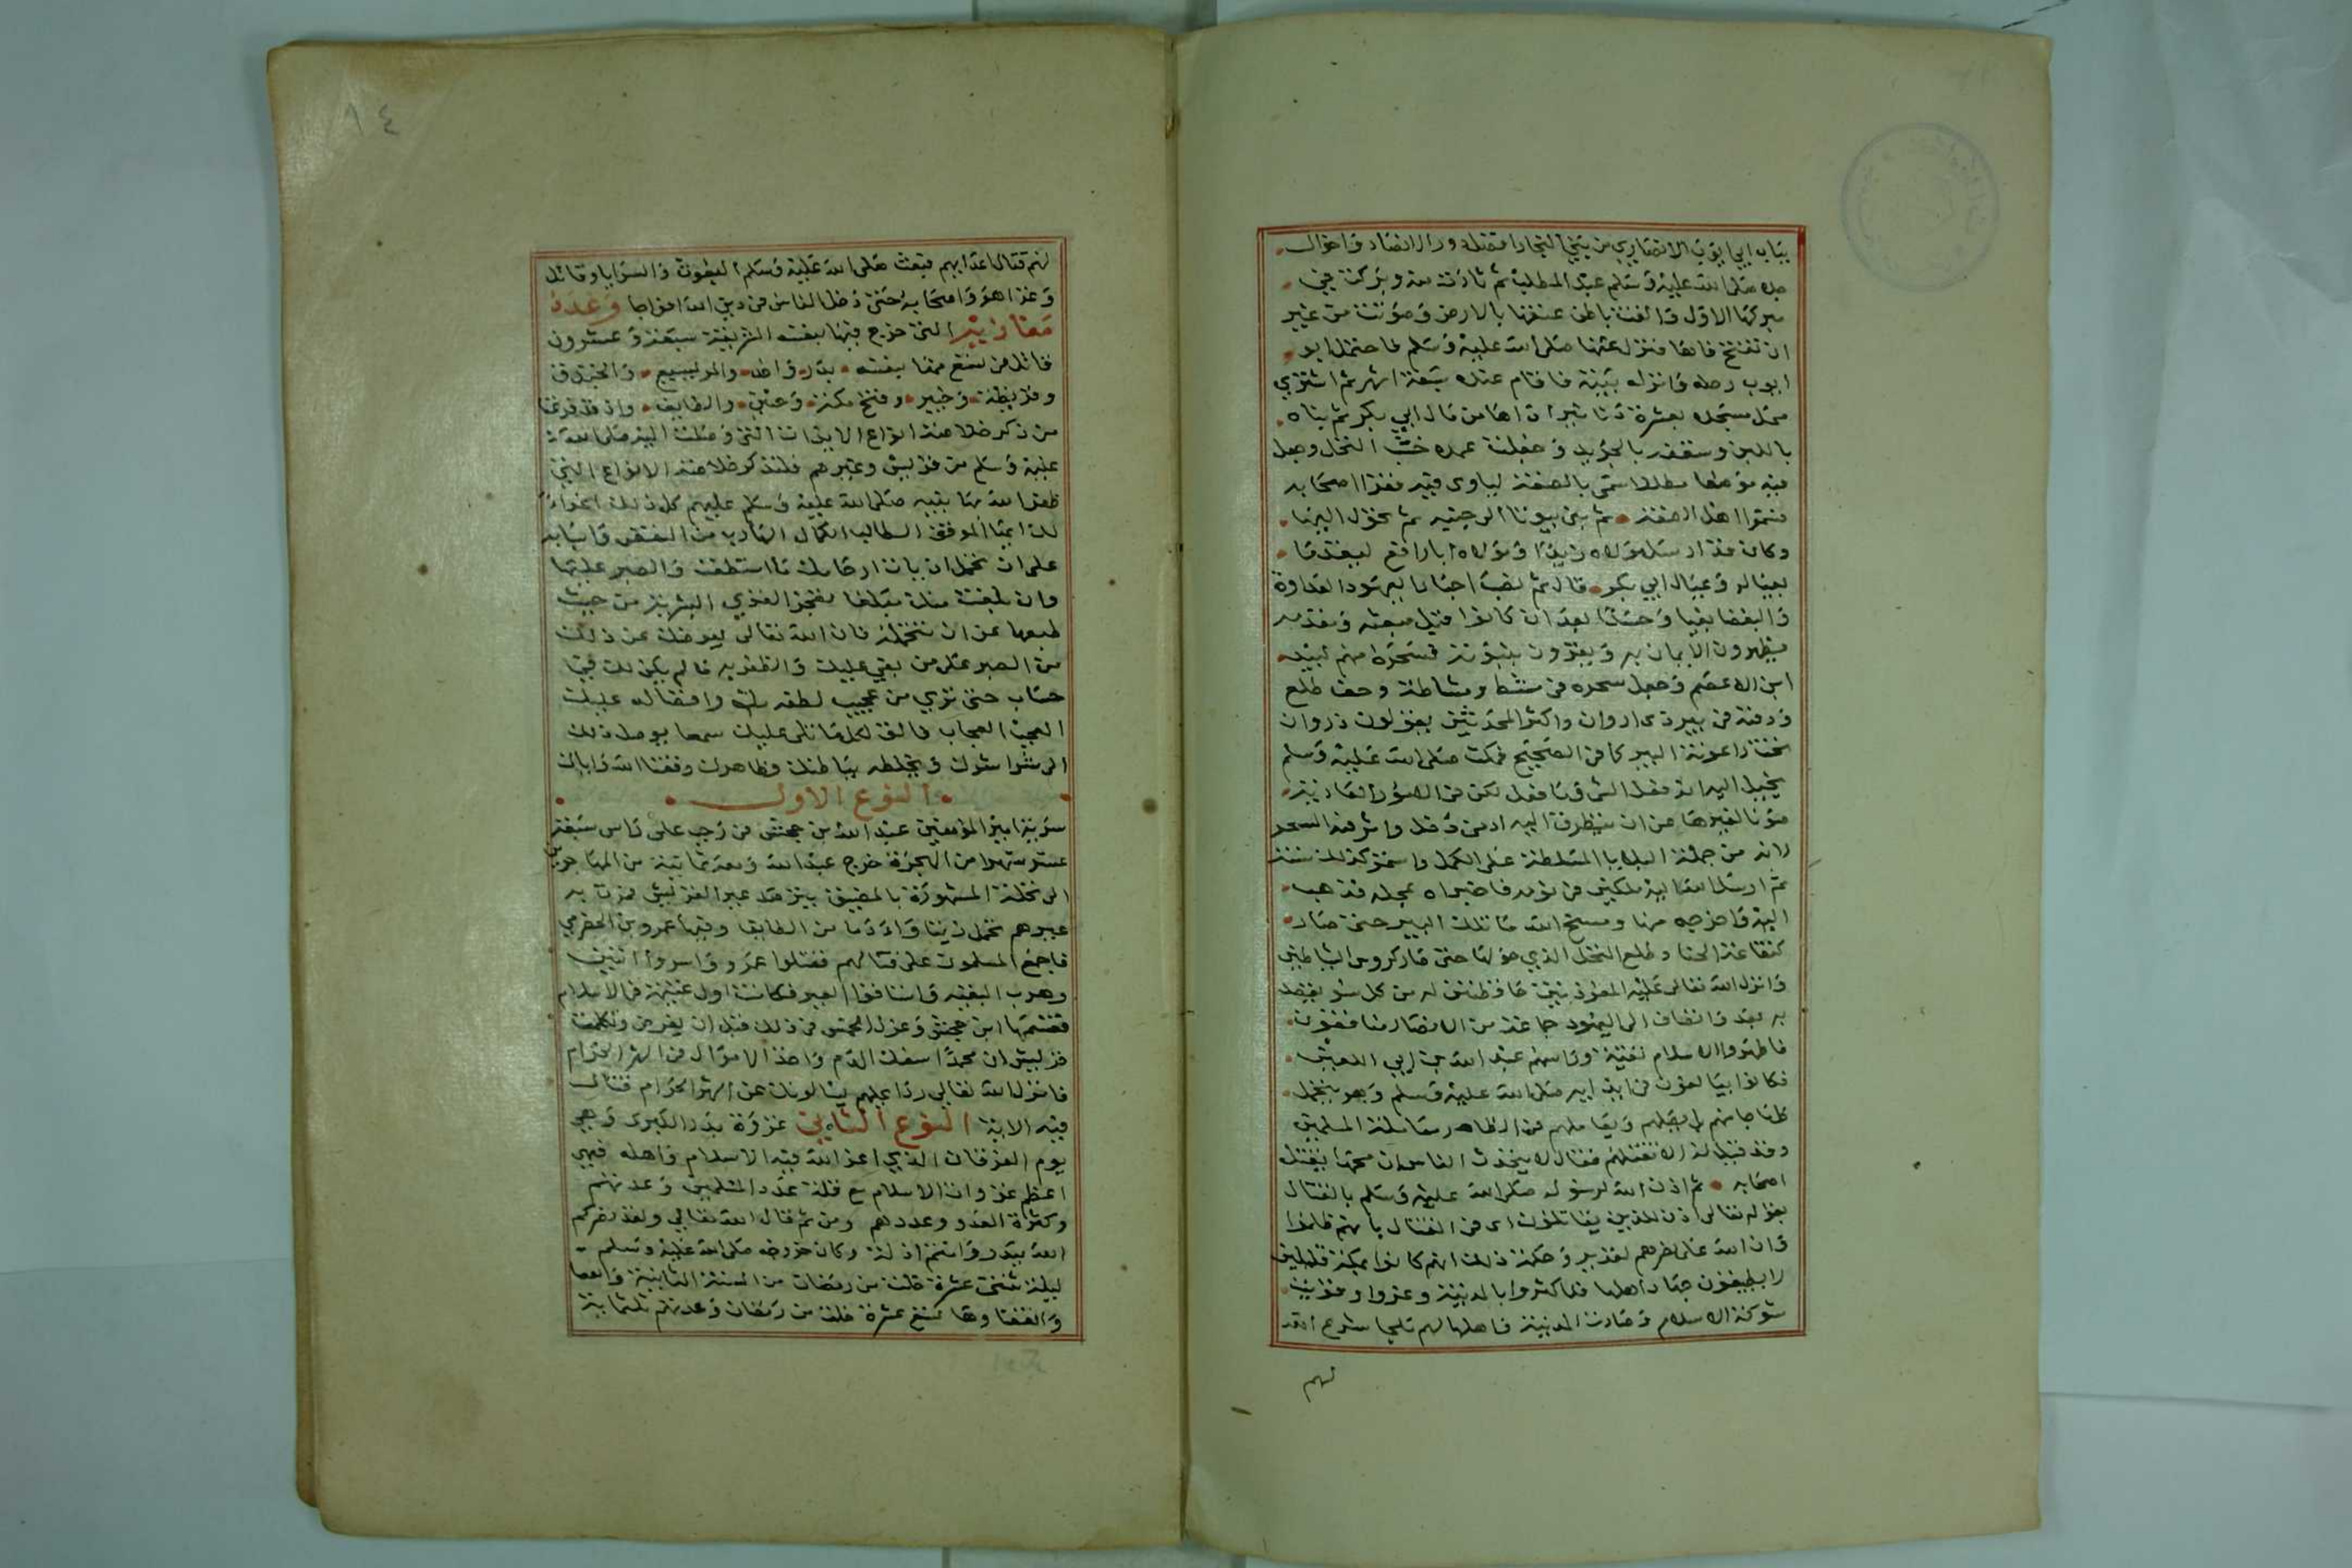 بباب ابي ايوب الانصاري من بني النجار افضل دور الانصار واخوال
جده صلى الله عليه وسلم عبد المطلب ثم ثارت منه وبركت في
مبركها الاول والقت باطن عنقها بالارض وصوتت من غير
ان تفتح فاها فنزل عنها صلى الله عليه وسلم فاحتمل ابو
ايوب رحله وانزله بيته فاقام عنده سبعة اشهر ثم اشترى
محل مسجده بعشرة دنانير اداها من مال ابي بكر ثم بناه
باللبن وسقفه بالجريد وجعلت عمده خشب النخل وجعل
فيه موضعا مظللا سمى بالصفة لياوى فيه فقرا اصحابه
فسموا اهل الصفة ثم بنى بيوتا الى جنبه ثم تحول اليها
وكان قد ارسل مولاه زيدا ومولاه ابا رافع ليقدما
بعياله وعيال ابي بكر قال ثم نصب احبار اليهود العداوة
والبغضا بغيا وحسدا بعد ان كانوا قبل مبعثه ومقدمه
يظهرون الايمان به ويقرون بنبوته فسحره منهم لبيد
ابن الاعصم وجعل سحره في مشط ومشاطة وجف طلع
ودفنه في بير ذى اروان واكثر المحدثين يقولون ذروان
تحت راعوثة البير كما في الصحيح فمكث صلى الله عليه وسلم
يخيل اليه انه فعل الشى وما فعل لكن في الامور العادية
صونا لغيرها عن ان يتطرق اليه ادنى دخل واثر فيه السحر
لانه من جملة البلايا المسلطة على الكمل واستمر كذلك سنة
ثم ارسل الله اليه ملكين في نومه فاخبراه بمحله فذهب
اليه واخرجه منها ومسخ الله ما تلك البير حتى صار
كنقاعة الحنا وطلع النخل الذي حولها حتى صار كروس الشياطين
وانزل الله تعالى عليه المعوذتين حافظتين له من كل سو يقصد
به بعد وانضاف الى اليهود جماعة من الانصار منافقون
فاظهروا الاسلام تقية وراسهم عبد الله بن ابي اللعين
فكانوا يبالغون في ايذايه صلى الله عليه وسلم وهو يتحمل
كلما جا منهم بل يصلهم ويعاملهم في الظاهر معاملة المسلمين
وقد قيل له الا تقتلهم فقال لا يتحدث الناس ان محمدا يقتل
اصحابه ثم اذن الله لرسوله صلى الله عليه وسلم بالقتال
بقوله تعالى اذن للذين يقاتلون اى في القتال بانهم ظلموا
وان الله على نصرهم لقدير وحكمة ذلك انهم كانوا بمكة قليلين
لا يطيقون جهاد اهلها فلما كثروا بالمدينة وعزوا وقويت
شوكة الاسلام وصارت المدينة واهلها لهم ملجا شرع الله
لهم
١٤
لهم قتال اعدايهم فبعث صلى الله عليه وسلم البعوث والسرايا وقاتل
وغزا هو واصحابه حتى دخل الناس في دين الله افواجا وعدد
مغازيه التى خرج فيها بنفسه الشريفة سبعة وعشرون
قاتل في تسع منها بنفسه بدر واحد والمريسيع والخندق
وقريظة وخيبر وفتح مكة وحنين والطايف واذ قد فرغنا
من ذكر خلاصة انواع الايذات التى وصلت اليه صلى الله
عليه وسلم من قريش وغيرهم فلنذكر خلاصة الانواع التى
ظفر الله بها نبيه صلى الله عليه وسلم عليهم كل ذلك
لك ايها الموفق الطالب الكمال الهارب من النقص واسبابه
على ان تحمل ايذات اركانك ما استطعت والصبر عليها
وان بلغت منك مبلغا يعجز القوي البشرية من حيث
طبعها عن ان تتحمله فان الله تعالى يعوضك عن ذلك
من الصبر على من بغى عليك والظفر به ما لم يكن لك في
حساب حتى ترى من عجيب لطفه بك وافضاله عليك
العجب العجاب فالق لكل ما تلى عليك سمعا يوصل ذلك
الى شواشوك ويخلطه بباطنك وظاهرك وفقنا الله واياك
النوع الاول
سرية امير المومنين عبد الله بن جحش في رجب على راس سبعة
عشر شهرا من الهجرة خرج عبد الله ومعه ثمانية من المهاجرين
الى نخلة المشهورة بالمضيق يترصد عير القريش فمرت به
عيرهم تحمل زبيبا وادما من الطايف وفيها عمرو بن الحضرمي
فاجمع المسلمون على قتالهم فقتلوا عمرو واسروا اثنين
وهرب البقية واستاقوا العير فكانت اول غنيمة في الاسلام
فقسمها ابن جحش وعزل الخمس في ذلك قبل ان يفرض وتكلمت
قريش ان محمدا سفك الدم واخذ الاموال في الشهر الحرام
فانزل الله تعالى ردا عليهم يسالونك عن الشهر الحرام قتال
فيه الاية النوع الثاني غزوة بدر الكبرى وهي
يوم الفرقان الذي اعز الله فيه الاسلام واهله فهي
اعظم غزوات الاسلام مع قلة عدد المسلمين وعدتهم
وكثرة العدو وعددهم ومن ثم قال الله تعالى ولقد نصركم
الله ببدر وانتم اذلة وكان خروجه صلى الله عليه وسلم
ليلة ثنتى عشرة خلت من رمضان من السنة الثانية
والتقتا وها لسبع عشرة خلت من رمضان وعدتهم ثلثماية